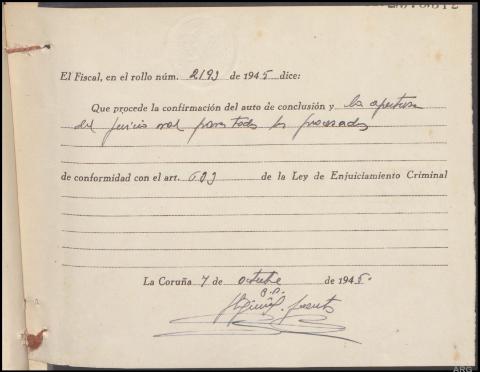 El Fiscal, en el rollo núm. 2193 de 1945 dice:
Que procede la confirmación del auto de conclusión y la apertura
del juicio oral para todos los procesados
de conformidad con el art. 633 de la Ley de Enjuiciamiento Criminal
La Coruña 4 de octubre de 1945.
ARG